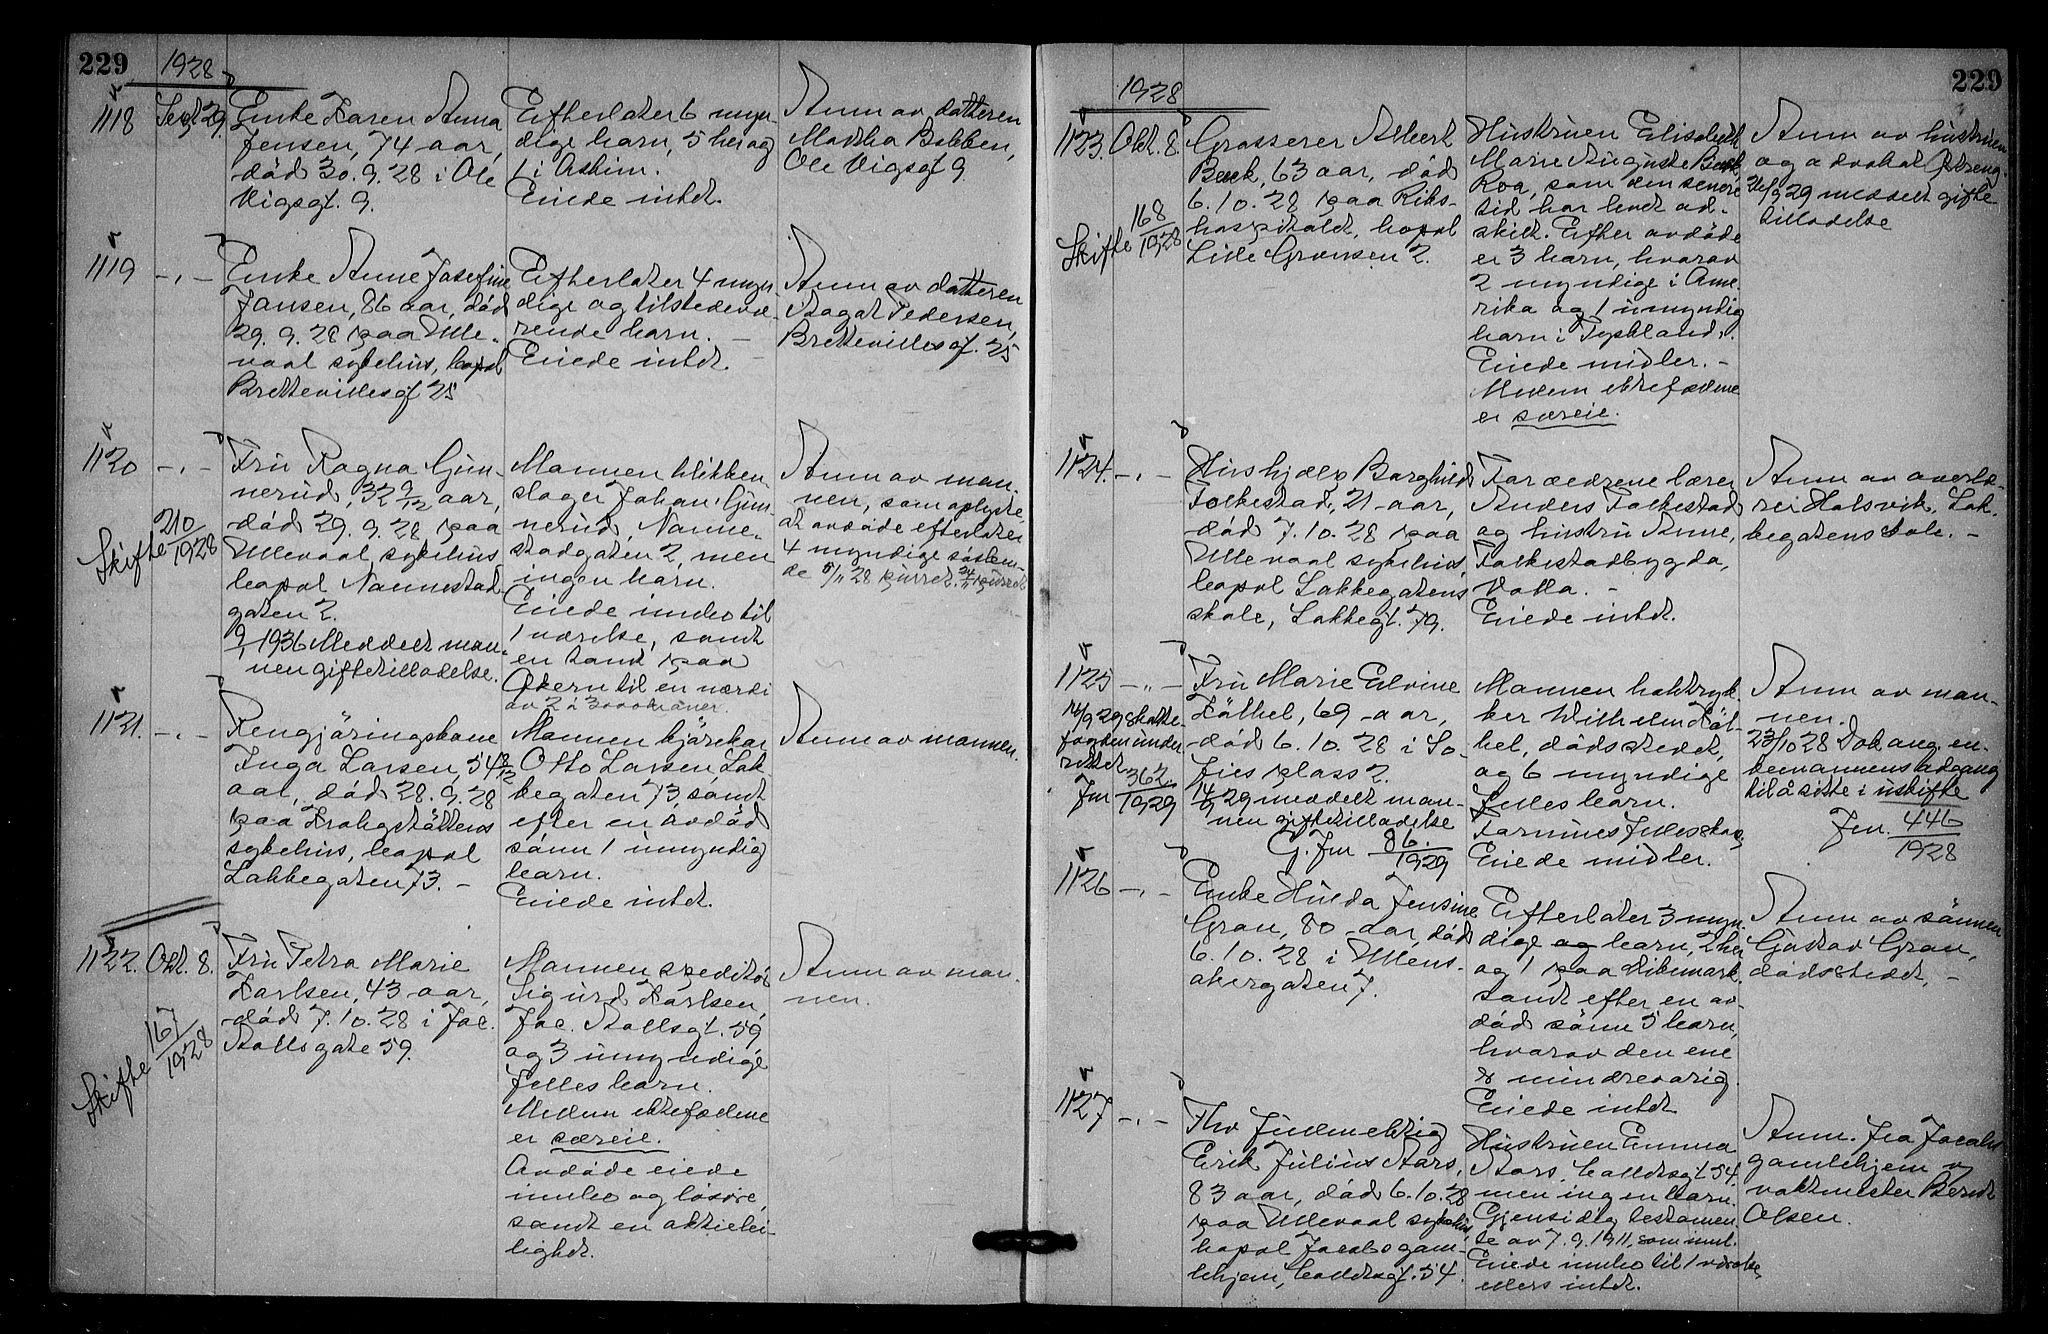 229
1928
1118 Sept 29.
Enke Karen Anna
Jensen, 74 aar,
död 30.9.28 i Ole
Vigsgt. 9.
Efterlater 6 myn-
dige barn, 5 her og
1 i Askim.
Eiede intet.
Anm av datteren
Martha Bekken,
Ole Vigsgt 9.
1119 -"-
Enke Anne Josefine
Jansen, 86 aar, död
29.9.28 paa Ulle-
vaal sykehus, bopel
Brettevillesgt 25
Efterlater 4 myn-
dige og tilstedevæ-
rende barn. -
Eiede intet.
Anm av datteren
Dagat Pedersen,
Brettevillesgt. 25
1120 -"-
Skifte 210/1928
Fru Ragna Gun-
nerud, 32 9/12 aar,
död 29.9.28 paa
Ullevaal sykehus
bopel Nannestad
gaten 2.
1936 Meddelt man-
nen giftetilladelse.
Mannen blikken-
slager Johan Gun-
nerud, Nanne-
stadgaten 2, men
ingen barn.
Eiede innbo til
1 værelse, samt
en tomt paa
Økern til en værdi
av 2 à 3000 kroner.
Anm av man-
nen, som oplyste,
at avdöde efterlater
4 myndige sösken-
de 5/11 28 purret.
1121. -"-
Rengjöringskone
Inga Larsen, 54 8/12
aar, död 28.9.28
paa Krohgstöttens
sykehus, bopel
Lakkegaten 73. -
Mannen kjörekar
Otto Larsen Lak-
kegaten 73, samt
efter en avdöd
sönn 1 umyndig
barn.
Eiede intet.
Anm av mannen.
1122. Okt. 8.
Skifte 167/1928
Fru Petra Marie
Karlsen, 43 aar,
död 7.10.28 i Jac.
Aallsgate 59.
Mannen speditör
Sigurd Karlsen,
Jac. Aallsgt. 59
og 3 umyndige
felles barn.
Mellem ektefællene
er særeie.
Avdöde eiede
innbo og lösöre,
samt en aktielei-
lighet.
Anm av man-
nen.
229
1928
1123. Okt. 8.
Skifte 168/1928
Grosserer Albert
Beck, 63 aar, död
6.10.28 paa Riks-
hospitalet, bopel
Lille Grensen 2.
Hustruen Elisabeth
Marie Auguste Beck,
Roa, som den senere
tid har levet ad-
skilt. Efter avdöde
er 3 barn, hvorav
2 myndige i Ame-
rika og 1 umyndig
barn i Tyskland.
Eiede midler. -
Mellem ektefællene
er særeie.
Anm av hustruen
og advokat
26/9 29 meddelt gifte
tilladelse
1124. -"-
Hushjelp Borghild
Folkestad, 21 aar,
död 7.10.28 paa
Ullevaal sykehus,
bopel Lakkegatens
skole, Lakkegt. 79.
Foreldrene lærer
Anders Folkestad
og hustru Anne,
Folkestadbygda,
Volla. -
Eiede intet.
Anm av overlæ-
rer Holsvik, Lak-
kegatens skole. -
1125 -"-
29 skatte-
fogden under
rettet
Jnr 362/1929
Fru Marie Elvine
Köthel, 69 aar,
död 6.10.28 i So-
fies plass 2.
29 meddelt man-
nen giftetilladelse
G. Jnr 86./1929
Mannen boktryk-
ker Wilhelm Köt-
hel, dödsstedet,
og 6 myndige
felles barn.
Formues felleskap
Eiede midler.
Anm av man-
nen.
23/10 28 Dok ang. en-
kemannens adgang
til å sitte i uskifte
Jnr. 446/1928
1126 -"-
Enke Hulda Jensine
Gran, 80 aar, död
6.10.28 i Ullens-
akergaten 7.
Efterlater 3 myn-
dige og barn, 2 her
og 1 paa Dikemark,
samt efter en av-
död sönn 5 barn,
hvorav den ene
er mindreårig.
Eiede intet
Anm av sönnen
Gustav Gran,
dödsstedet, -
1127 -"-
Fhv fullmektig
Erik Julius Aars,
83 aar, död 6.10.28
paa Ullevaal sykehus
bopel Jacobs gam-
lehjem, Colletsgt. 54.
Hustruen Emma
Aars, Colletsgt 54
men ingen barn.
Gjensidig testamen-
te av 7.9.1911, som
Eiede innbo til 1 værelse,
ellers intet.
Anm. fra Jacobs
gamlehjem v
vaktmester Bernt
Olsen.